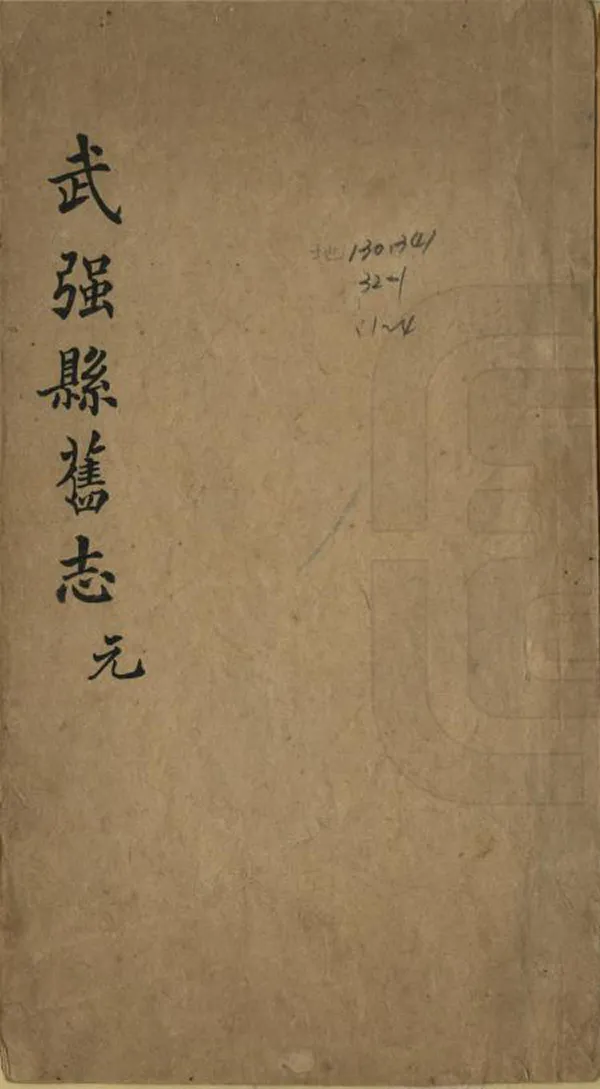 武强縣舊志 元
地 130.341
32-1
11~4